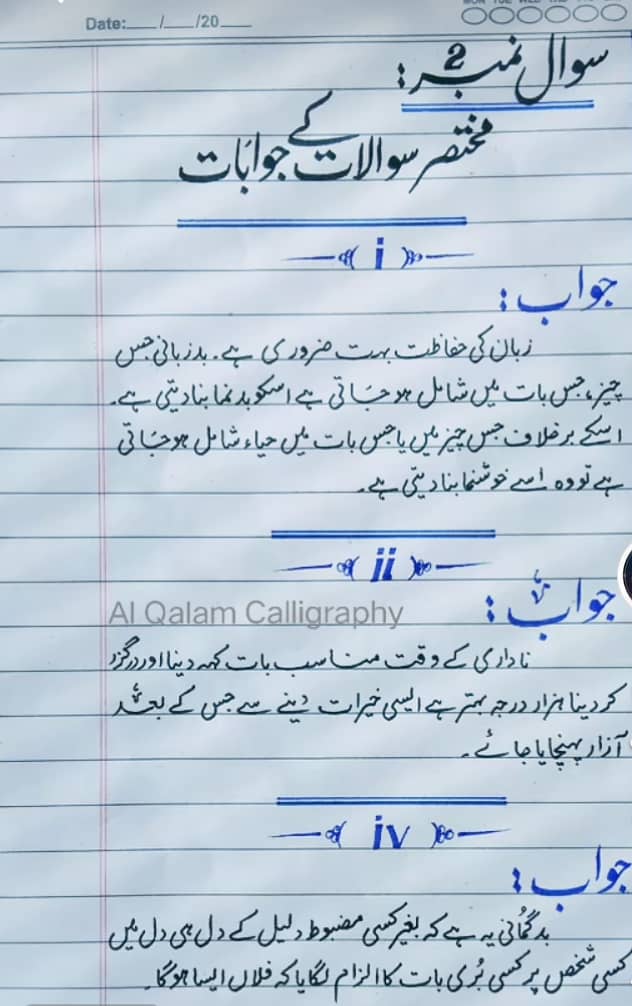 Date:___/___/20___
سوال نمبر 2 :
مختصر سوالات کے جوابات
i
جواب :
زبان کی حفاظت بہت ضروری ہے۔ بدزبانی جس
چیز، جس بات میں شامل ہو جاتی ہے اسکو بدنما بنا دیتی ہے۔
اسکے برخلاف جس چیز میں یا جس بات میں حیاء شامل ہو جاتی
ہے تو وہ اسے خوشنما بنا دیتی ہے۔
ii
جواب :
Al Qalam Calligraphy
ناداری کے وقت مناسب بات کہہ دینا اور درگزر
کر دینا ہزار درجہ بہتر ہے ایسی خیرات دینے سے جس کے بعد
آزار پہنچایا جائے۔
iv
جواب :
بدگمانی یہ ہے کہ بغیر کسی مضبوط دلیل کے دل ہی دل میں
کسی شخص پر کسی بُری بات کا الزام لگایا کہ فلاں ایسا ہوگا۔